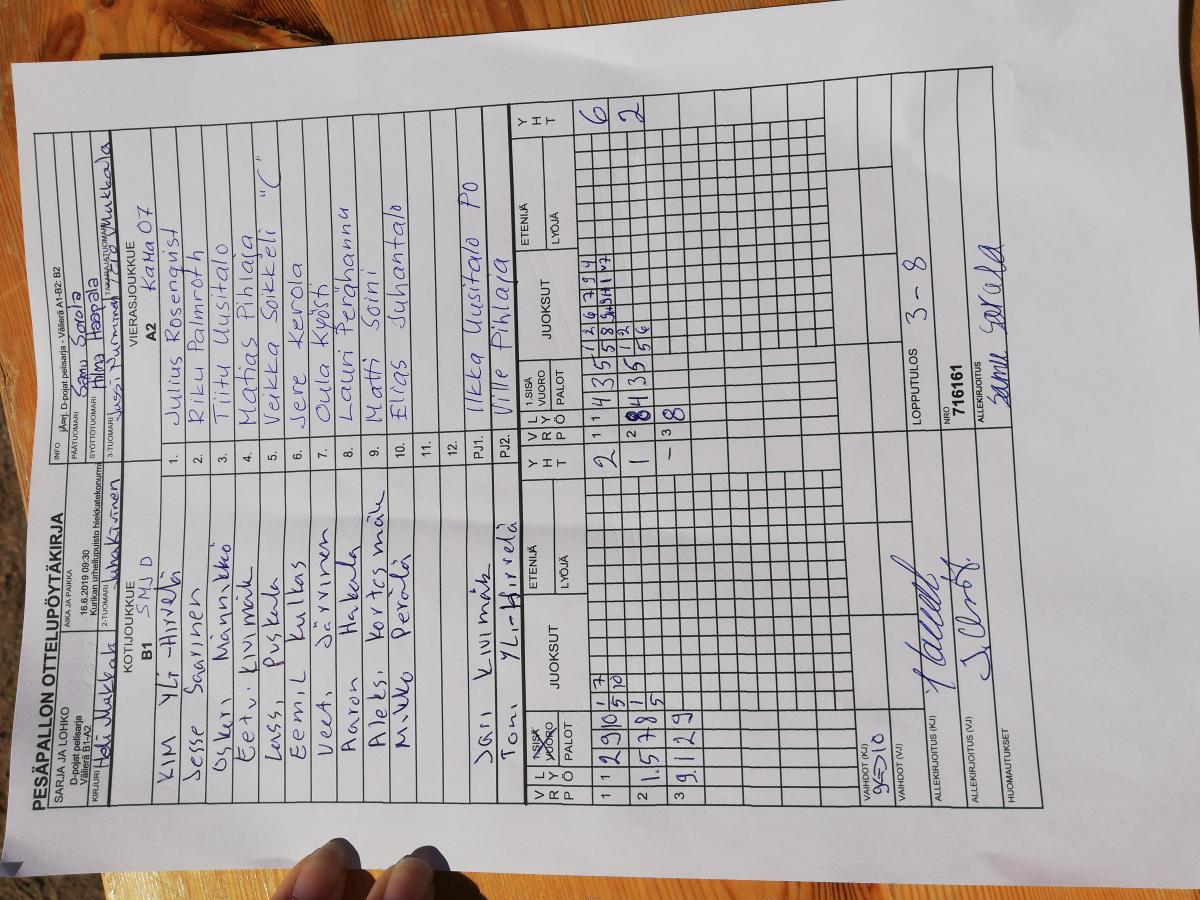 PESÄPALLON OTTELUPÖYTÄKIRJA
SARJA JA LOHKO
D-pojat pelisarja
Välierä B1-A2
AIKA JA PAIKKA
16.6.2019 09:30
Kurikan urheilupuisto hiekkatekonurmi
INFO jÄarj. D-pojat pelisarja - Välierä A1-B2: B2
PÄÄTUOMARI Samu Sorola
SYÖTTÖTUOMARI Hilma Haapala
KIRJURI Heli Mukkala
2-TUOMARI Juha Kivinen
3-TUOMARI Jussi Nurminen
TAKARAJATUOMARI Tero Mukkala
KOTIJOUKKUE
B1 SMJ D
VIERASJOUKKUE
A2 KaMa 07
KIM YLI-HIRVELÄ 1. Julius Rosenqvist
Jesse Saarinen 2. Riku Palmroth
Oskari Männikkö 3. Tiitu Uusitalo
Eetu Kivimäk 4. Matias Pihlaja
Lassi Puskala 5. Veikka Soikkeli "C"
EEMIL Kulkas 6. Jere Kerola
Veeti Järvinen 7. Oula Kyösti
Aaron Hakala 8. Lauri Perähannu
Aleksi Kortesmäk 9. Matti Soini
Mikko Perälä 10. Elias Juhantalo
11.
12.
Jari Kivimäk PJ1. Ilkka Uusitalo PO
Toni YLi-Hirvelä PJ2. Ville Pihlaja
VRP LYÖ 1.SISÄ VUORO PALOT JUOKSUT ETENIJÄ LYÖJÄ YHT VRP LYÖ 1.SISÄ VUORO PALOT JUOKSUT ETENIJÄ LYÖJÄ YHT
1 1 2 9 10 1 7 2 1 1 4 3 5 1 2 6 7 9 4 6
5 10 5 8
2 1. 5 7 8 1 1 2 8 4 3 5 1 2 2
5 5 6
3 9. 1 2 9 - 3 8
VAIHDOT (KJ)
9 10
VAIHDOT (VJ)
LOPPUTULOS 3-8
ALLEKIRJOITUS (KJ)
NRO
716161
ALLEKIRJOITUS (VJ)
ALLEKIRJOITUS
HUOMAUTUKSET